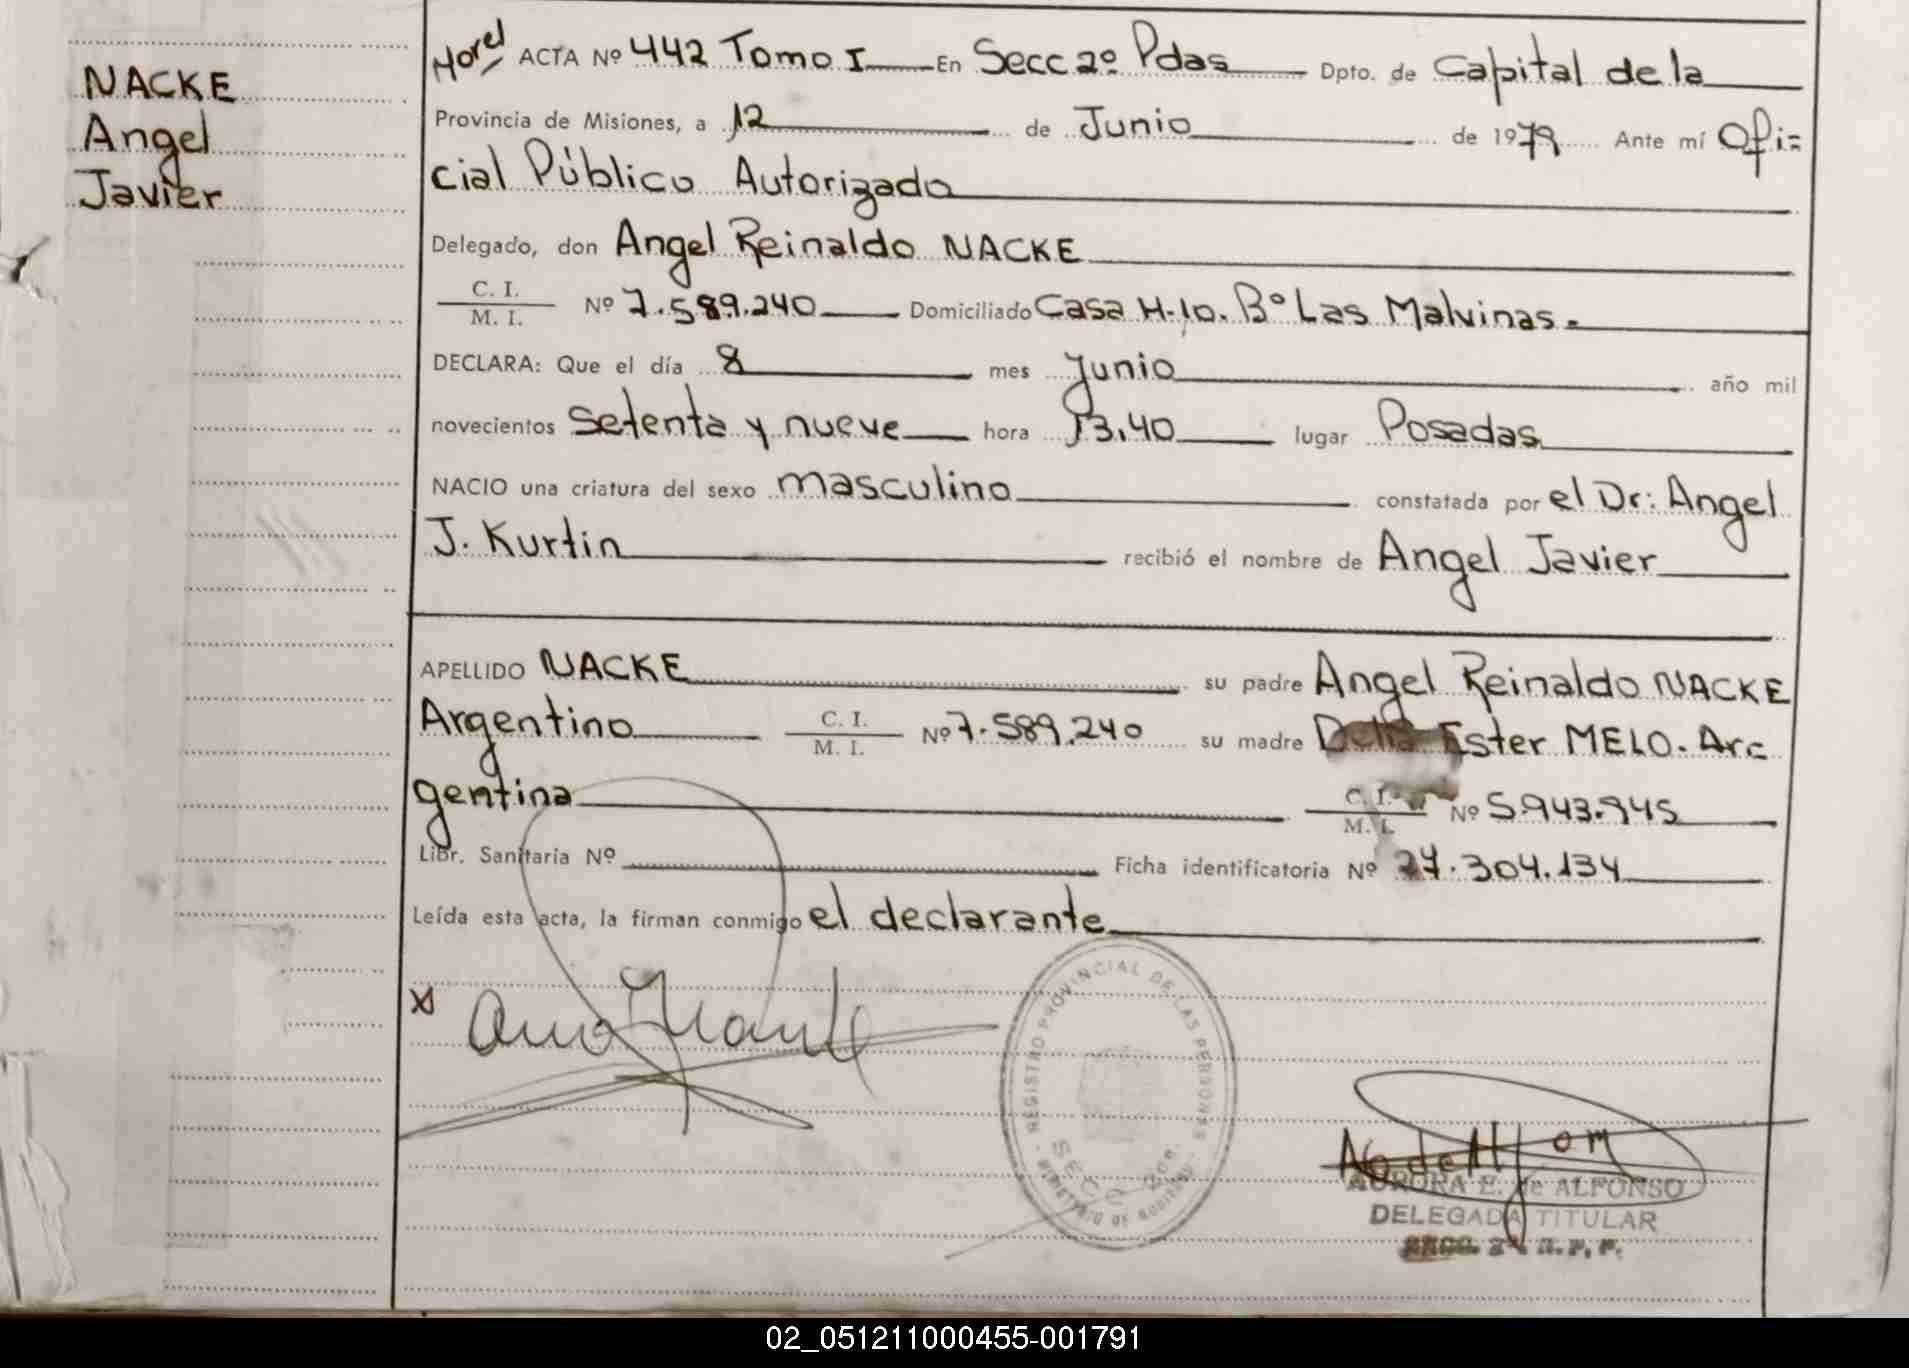 NACKE
Angel
Javier
ACTA Nº 442 Tomo I En Secc 2º Pdas Dpto. de Capital de la
Provincia de Misiones, a 12 de Junio de 1979 Ante mí Ofi=
cial Público Autorizado
Delegado, don Angel Reinaldo NACKE
C. I.
M. I. Nº 7.589.240 Domiciliado Casa H-10. Bº Las Malvinas.-
DECLARA: Que el día 8 mes Junio año mil
novecientos setenta y nueve hora 13,40 lugar Posadas
NACIO una criatura del sexo masculino constatada por el Dr: Angel
J. Kurtin recibió el nombre de Angel Javier
APELLIDO NACKE su padre Angel Reinaldo NACKE
Argentino C. I.
M. I. Nº 7.589.240 su madre Delia Ester MELO. Ar=
gentina C. I.
M. I. Nº 5.943.945
Libr. Sanitaria Nº Ficha identificatoria Nº 27.304.134
Leída esta acta, la firman conmigo el declarante
REGISTRO PROVINCIAL DE LAS PERSONAS
MINISTERIO DE GOBIERNO
AURORA E. de ALFONSO
DELEGADA TITULAR
SECC. 2ª R. P. P.
02_051211000455-001791